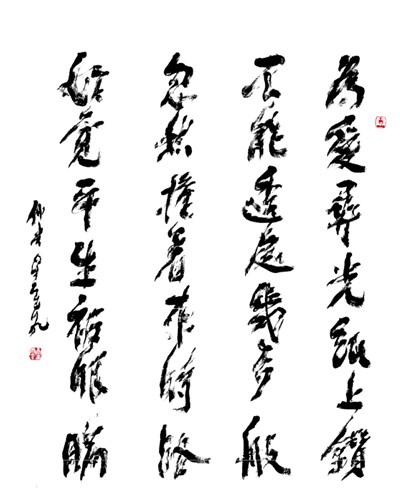 為愛尋光紙上鑽
不能透處幾多般
忽然撞着來時路
始覺平生被眼瞞